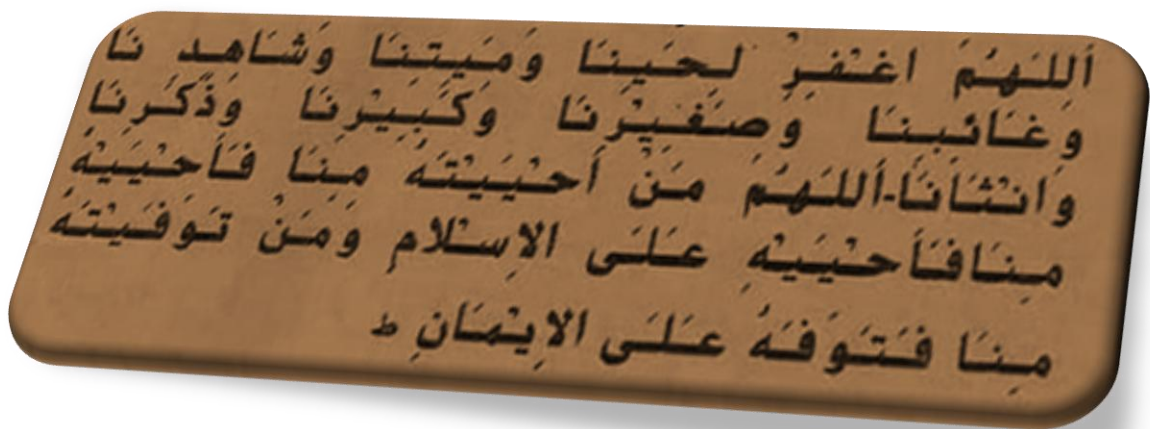 أَللَهُمَ اغْفِرْ لِحَيِنَا وَمَيِتِنَا وَشَاهِدِ نَا
وَغَائِبِنَا وَصَغِيْرِنَا وَكَبِيْرِنَا وَذَكَرِنَا
وَانْثَانَا-أَللَهُمَ مَنْ أَحْيَيْتَهُ مِنَا فَأَحْيَيْهُ
مِنَافَأَحْيَيْهِ عَلَى الاِسْلامِ وَمَنْ تَوَفَيْتَهُ
مِنَا فَتَوَفَهُ عَلَى الاِيْمَانِ ط